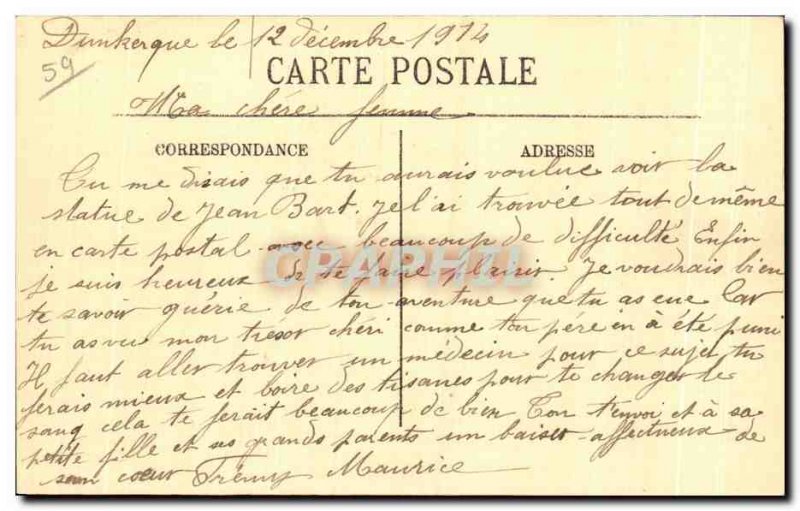 Dunkerque le 12 décembre 1914
59
CARTE POSTALE
Ma chére femme
CORRESPONDANCE
ADRESSE
Tu me disais que tu aurais voulue voir la
statue de Jean Bart. Je l'ai trouvée tout de même
en carte postal avec beaucoup de difficulté Enfin
je suis heureux de te faire plaisir. Je voudrais bien
te savoir guérie de ton aventure que tu as eue Car
tu as vu mon tresor chéri comme ton pére en à été puni
Il faut aller trouver un médecin pour ce sujet tu
ferais mieux et boire des tisanes pour te changer le
sang cela te ferait beaucoup de bien Ton t'envoi et à sa
petite fille et ses grands parents un baiser affectueux de
son coeur Maurice
CPAPHIL